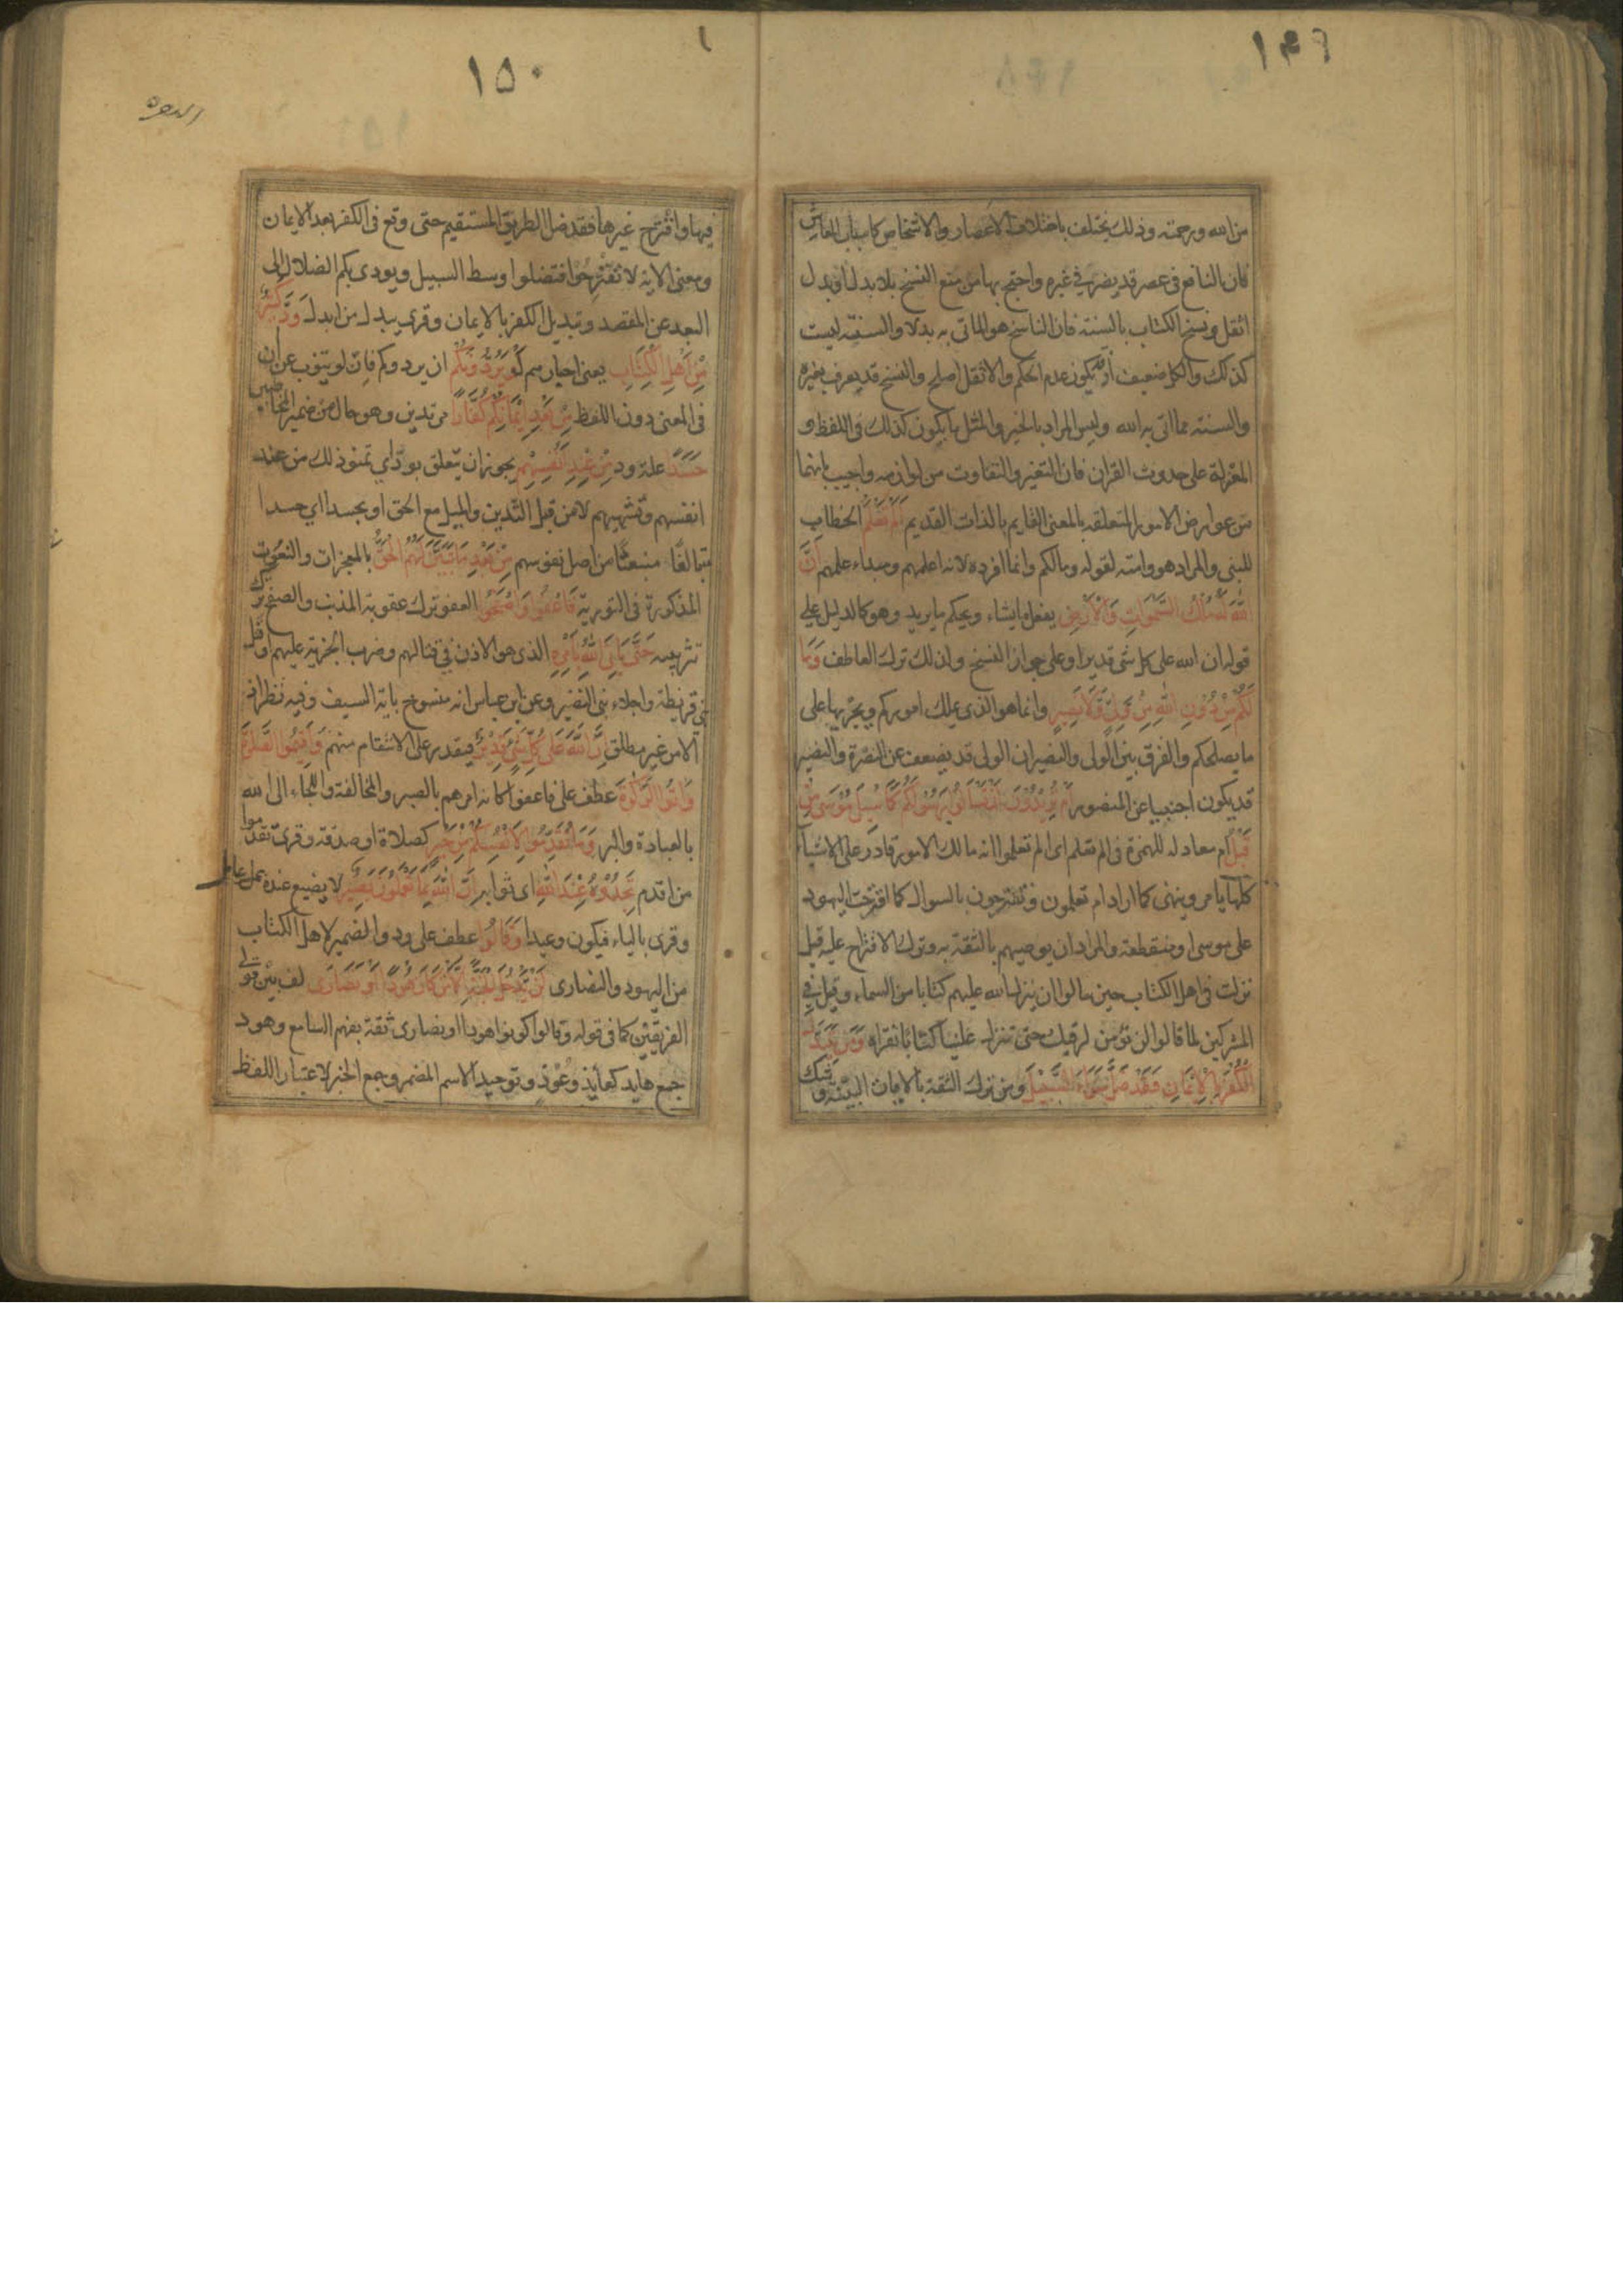 ١٤٩
من الله ورحمته وذلك يختلف باختلاف الاعصار والاشخاص كاسباب المعاش
فان النافع فى عصر قد يضر فى غيره واحتج بها من منع النسخ بلا بدل او ببدل
اثقل ونسخ الكتاب بالسنة فان الناسخ هو الماتى به بدلا والسنة ليست
كذلك والكل ضعيف اذ قد يكون عدم الحكم والاثقل اصلح والنسخ قد يعرف بغيره
والسنة مما اتى به الله وليس المراد بالخير والمثل ما يكون كذلك فى اللفظ و
المعتزلة على حدوث القران فان التغير والتفاوت من لوازمه واجيب بانهما
من عوارض الامور المتعلقه بالمعنى القايم بالذات القديم اَلَمْ تَعْلَمْ الخطاب
للنبى والمراد هو وامته لقوله ومالكم وانما افرده لانه اعلمهم ومبداء علمهم اَنَّ
اللّٰهَ لَهُ مُلْكُ السَّمٰوَاتِ وَالْاَرْضِ يفعل ما يشاء ويحكم ما يريد وهو كالدليل على
قوله ان الله على كل شئ قدير او على جواز النسخ ولذلك ترك العاطف وَمَا
لَكُمْ مِنْ دُوْنِ اللّٰهِ مِنْ وَلِىٍّ وَلَا نَصِيرٍ وانما هو الذى يملك اموركم ويجريها على
ما يصلحكم والفرق بين الولى والنصير ان الولى قد يضعف عن النصرة والنصير
قد يكون اجنبيا عن المنصور اَمْ تُرِيْدُوْنَ اَنْ تَسْاَلُوْا رَسُوْلَكُمْ كَمَا سُئِلَ مُوْسٰى مِنْ
قَبْلُ ام معادله للهمزة فى الم تعلم اى الم تعلموا انه مالك الامور قادر على الاشياء
كلها يامر وينهى كما اراد ام تعلمون وتقترحون بالسوال كما اقترحت اليهود
على موسى او منقطعة والمراد ان يوصيهم بالثقة به وترك الاقتراح عليه قيل
نزلت فى اهل الكتاب حين سالوا ان ينزل الله عليهم كتابا من السماء وقيل فى
المشركين لما قالوا لن نؤمن لرقيك حتى تنزل علينا كتابا نقراه وَمَنْ يَتَبَدَّلِ
الْكُفْرَ بِالْاِيْمَانِ فَقَدْ ضَلَّ سَوَاءَ السَّبِيْلِ ومن ترك الثقة بالايات البينة وشك
١٥٠
البقره
فيها واقترح غيرها فقد ضل الطريق المستقيم حتى وقع فى الكفر بعد الايمان
ومعنى الاية لا تقترحوا فتضلوا وسط السبيل ويودى بكم الضلال الى
البعد عن المقصد وتبديل الكفر بالايمان وقرى يبدل من ابدل وَدَّ كَثِيْرٌ
مِنْ اَهْلِ الْكِتَابِ يعنى احبارهم لَوْ يَرُدُّوْنَكُمْ ان يردوكم فان لو ينوب عن ان
فى المعنى دون اللفظ مِنْ بَعْدِ اِيْمَانِكُمْ كُفَّارًا مرتدين وهو حال من ضمير المخاطبين
حَسَدًا علة ود مِنْ عِنْدِ اَنْفُسِهِمْ يجوز ان يتعلق بود اى تمنو ذلك من عند
انفسهم وتشهيهم لا من قبل التدين والميل مع الحق او بحسدا اى حسدا
متبالغا منبعثا من اصل نفوسهم مِنْ بَعْدِ مَا تَبَيَّنَ لَهُمُ الْحَقُّ بالمعجزات والنعوت
المذكورة فى التورية فَاعْفُوْا وَاصْفَحُوْا العفو ترك عقوبة المذنب والصفح ترك
تثريبه حَتّٰى يَاْتِىَ اللّٰهُ بِاَمْرِهِ الذى هو الاذن فى قتالهم وضرب الجزية عليهم او قتل
بنى قريظة واجلاء بنى النضير وعن ابن عباس انه منسوخ باية السيف وفيه نظر اذ
الامر غير مطلق اِنَّ اللّٰهَ عَلٰى كُلِّ شَىْءٍ قَدِيْرٌ فيقدر على الانتقام منهم وَاَقِيْمُوا الصَّلٰوةَ
وَاٰتُوا الزَّكٰوةَ عطف على فاعفوا كانه امرهم بالصبر والمخالفة والجاء الى الله
بالعبادة والبر وَمَا تُقَدِّمُوْا لِاَنْفُسِكُمْ مِنْ خَيْرٍ كصلاة او صدقة وقرئ تقدموا
من اقدم تَجِدُوْهُ عِنْدَ اللّٰهِ اى ثوابه اِنَّ اللّٰهَ بِمَا تَعْمَلُوْنَ بَصِيْرٌ لا يضيع عنده عمل عامل
وقرى بالياء فيكون وعيدا وَقَالُوْا عطف على ود والضمير لاهل الكتاب
من اليهود والنصارى لَنْ يَدْخُلَ الْجَنَّةَ اِلَّا مَنْ كَانَ هُوْدًا اَوْ نَصَارٰى لف بين قولى
الفريقين كما فى قوله وقالوا كونوا هودا او نصارى ثقة بفهم السامع وهود
جمع هايد كعايذ وعوذ وتوحيد الاسم المضمر وجمع الخبر لاعتبار اللفظ